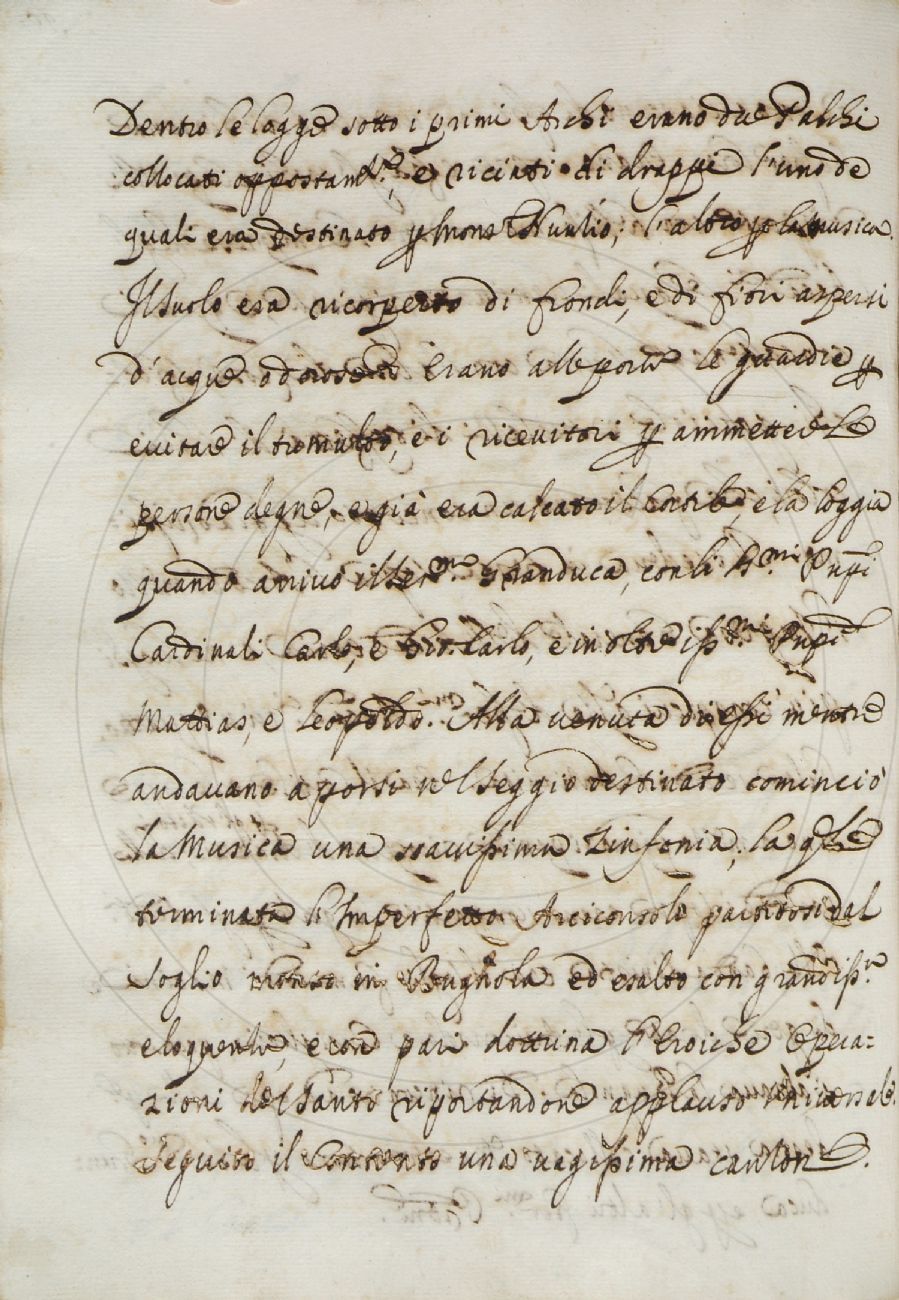 Dentro le loggie sotto i primi Archi erano due Palchi
collocati oppostam.te, e riciati di drappi l'uno de
quali era destinato p Mons Nunzio; l'altro p la Musica.
Il suolo era ricorperto di frondi, e di fiori aspersi
d'acque odorose Erano alle porte le guardie p
evitare il tumulto, e i ricevitori p ammettere Le
persone degne, e già era calcato il Cortile, e la loggia
quando arrivò il Ser.mo Granduca, con li S.mi Pnpi
Cardinali Carlo, e Gio: Carlo, e inoltre i SS.mi Pnpi
Mattias, e Leopoldo. Alla venuta di essi mentre
andavano a porsi nel seggio destinato cominciò
la Musica una soavissima Zinfonia, la qle
terminata l'Imperfetto Arciconsolo partitosi dal
Soglio montò in Bugnola ed esaltò con grandiss.a
eloquentia, e con pari dottrina l'Eroiche Opera=
zioni del Santo riportandone applauso universale.
Seguitò il Contento una vaghissima canzone.